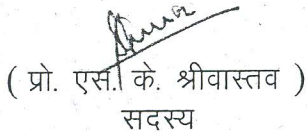 ( प्रो. एस. के. श्रीवास्तव )
सदस्य